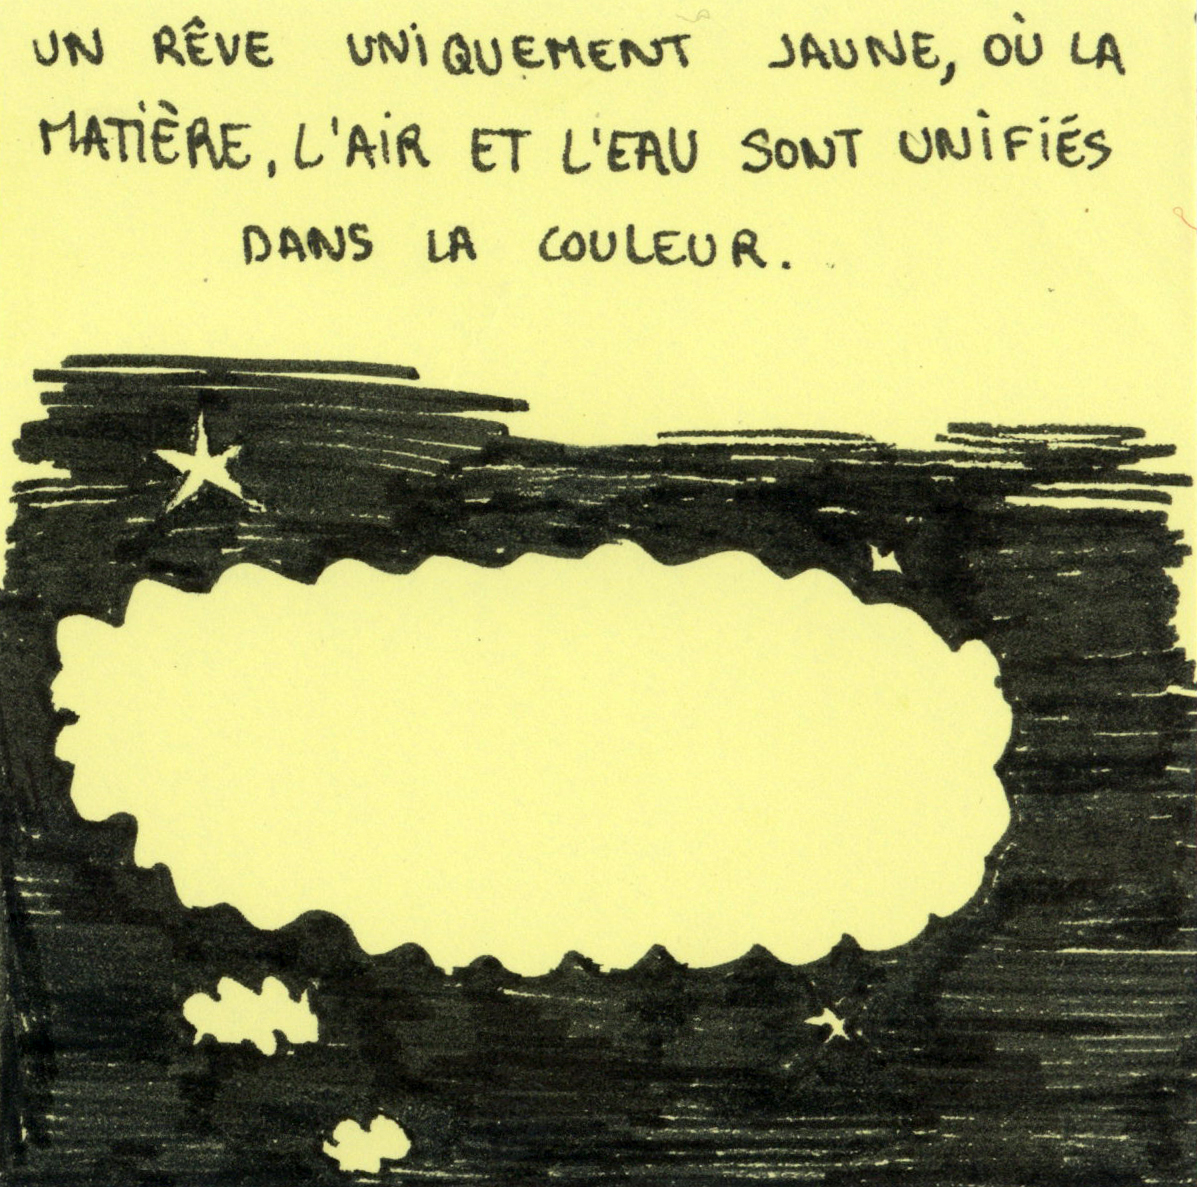 UN RÊVE UNIQUEMENT JAUNE, OÙ LA
MATIÈRE, L'AIR ET L'EAU SONT UNIFIÉS
DANS LA COULEUR.